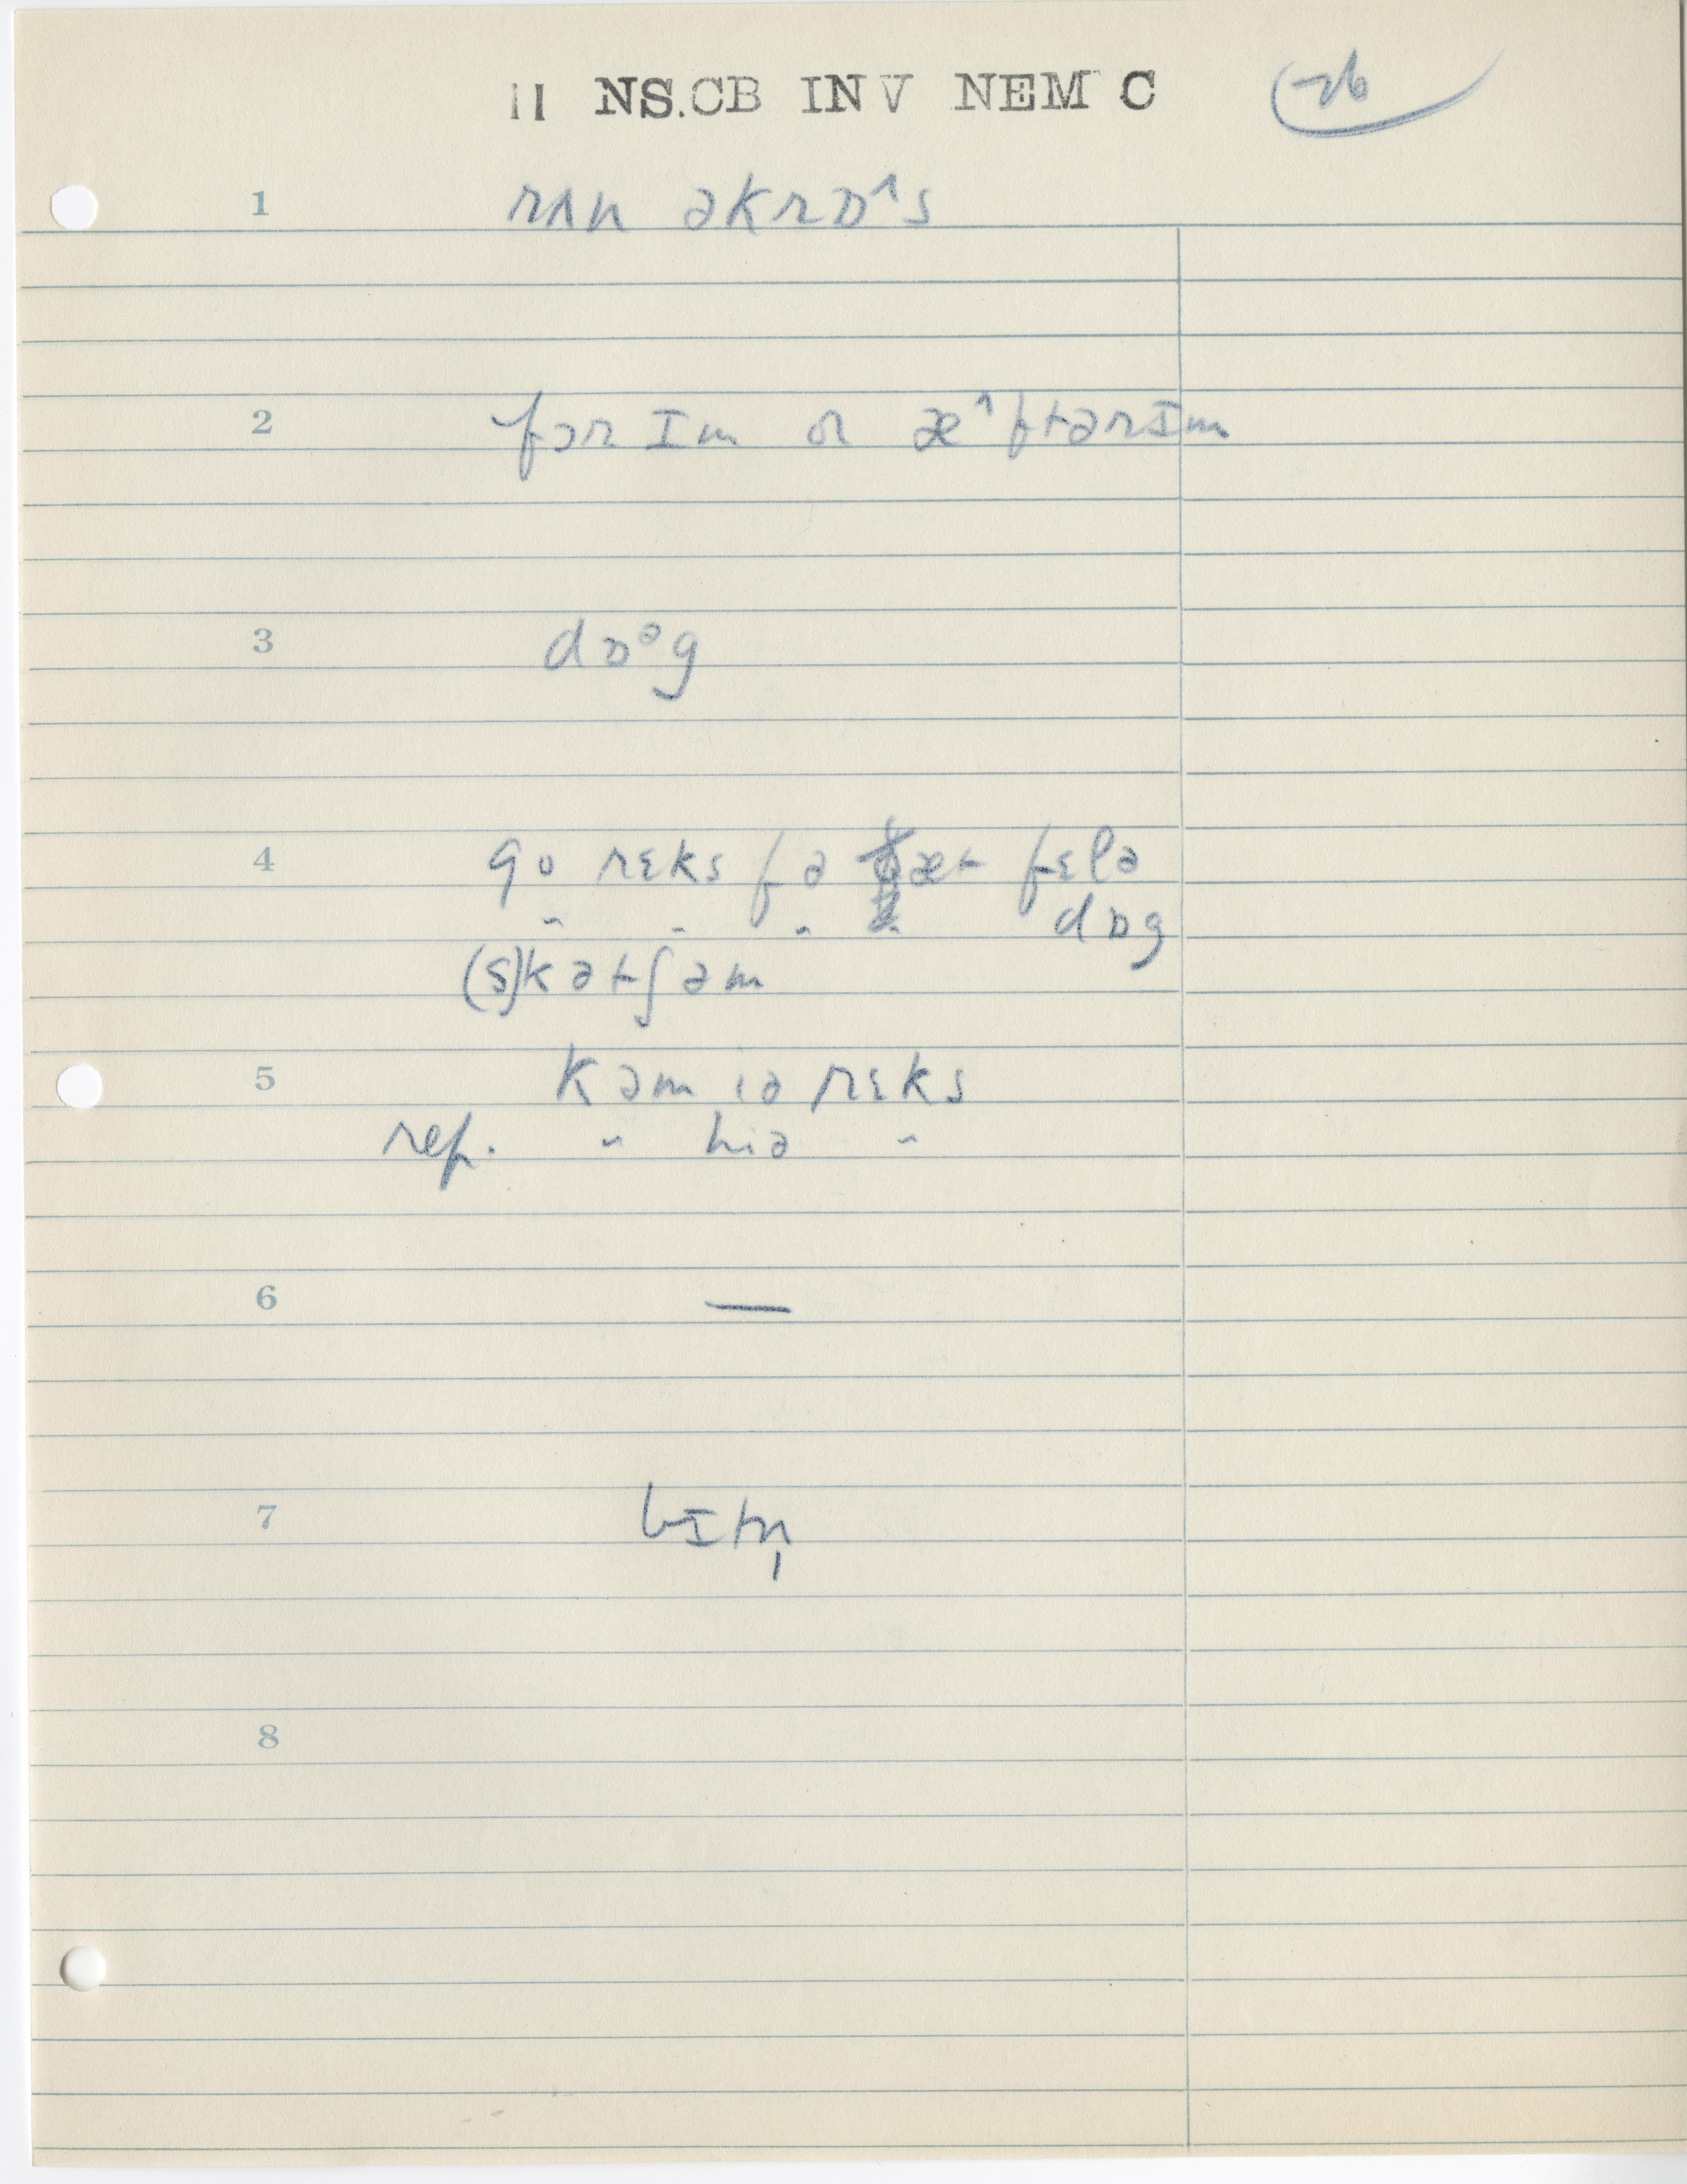 11 NS.CB INV NEM C 26
1 rʌn əkrɒ^s
2 fɔr ɪm or æ^ftərɪm
3 dɒᵊg
4 go rɛks fə ðæt fɛlə
" " " " dɒg
(s)kətʃəm
5 kəm iə rɛks
rep. " hiə "
6 —
7 bɪtn̩
8